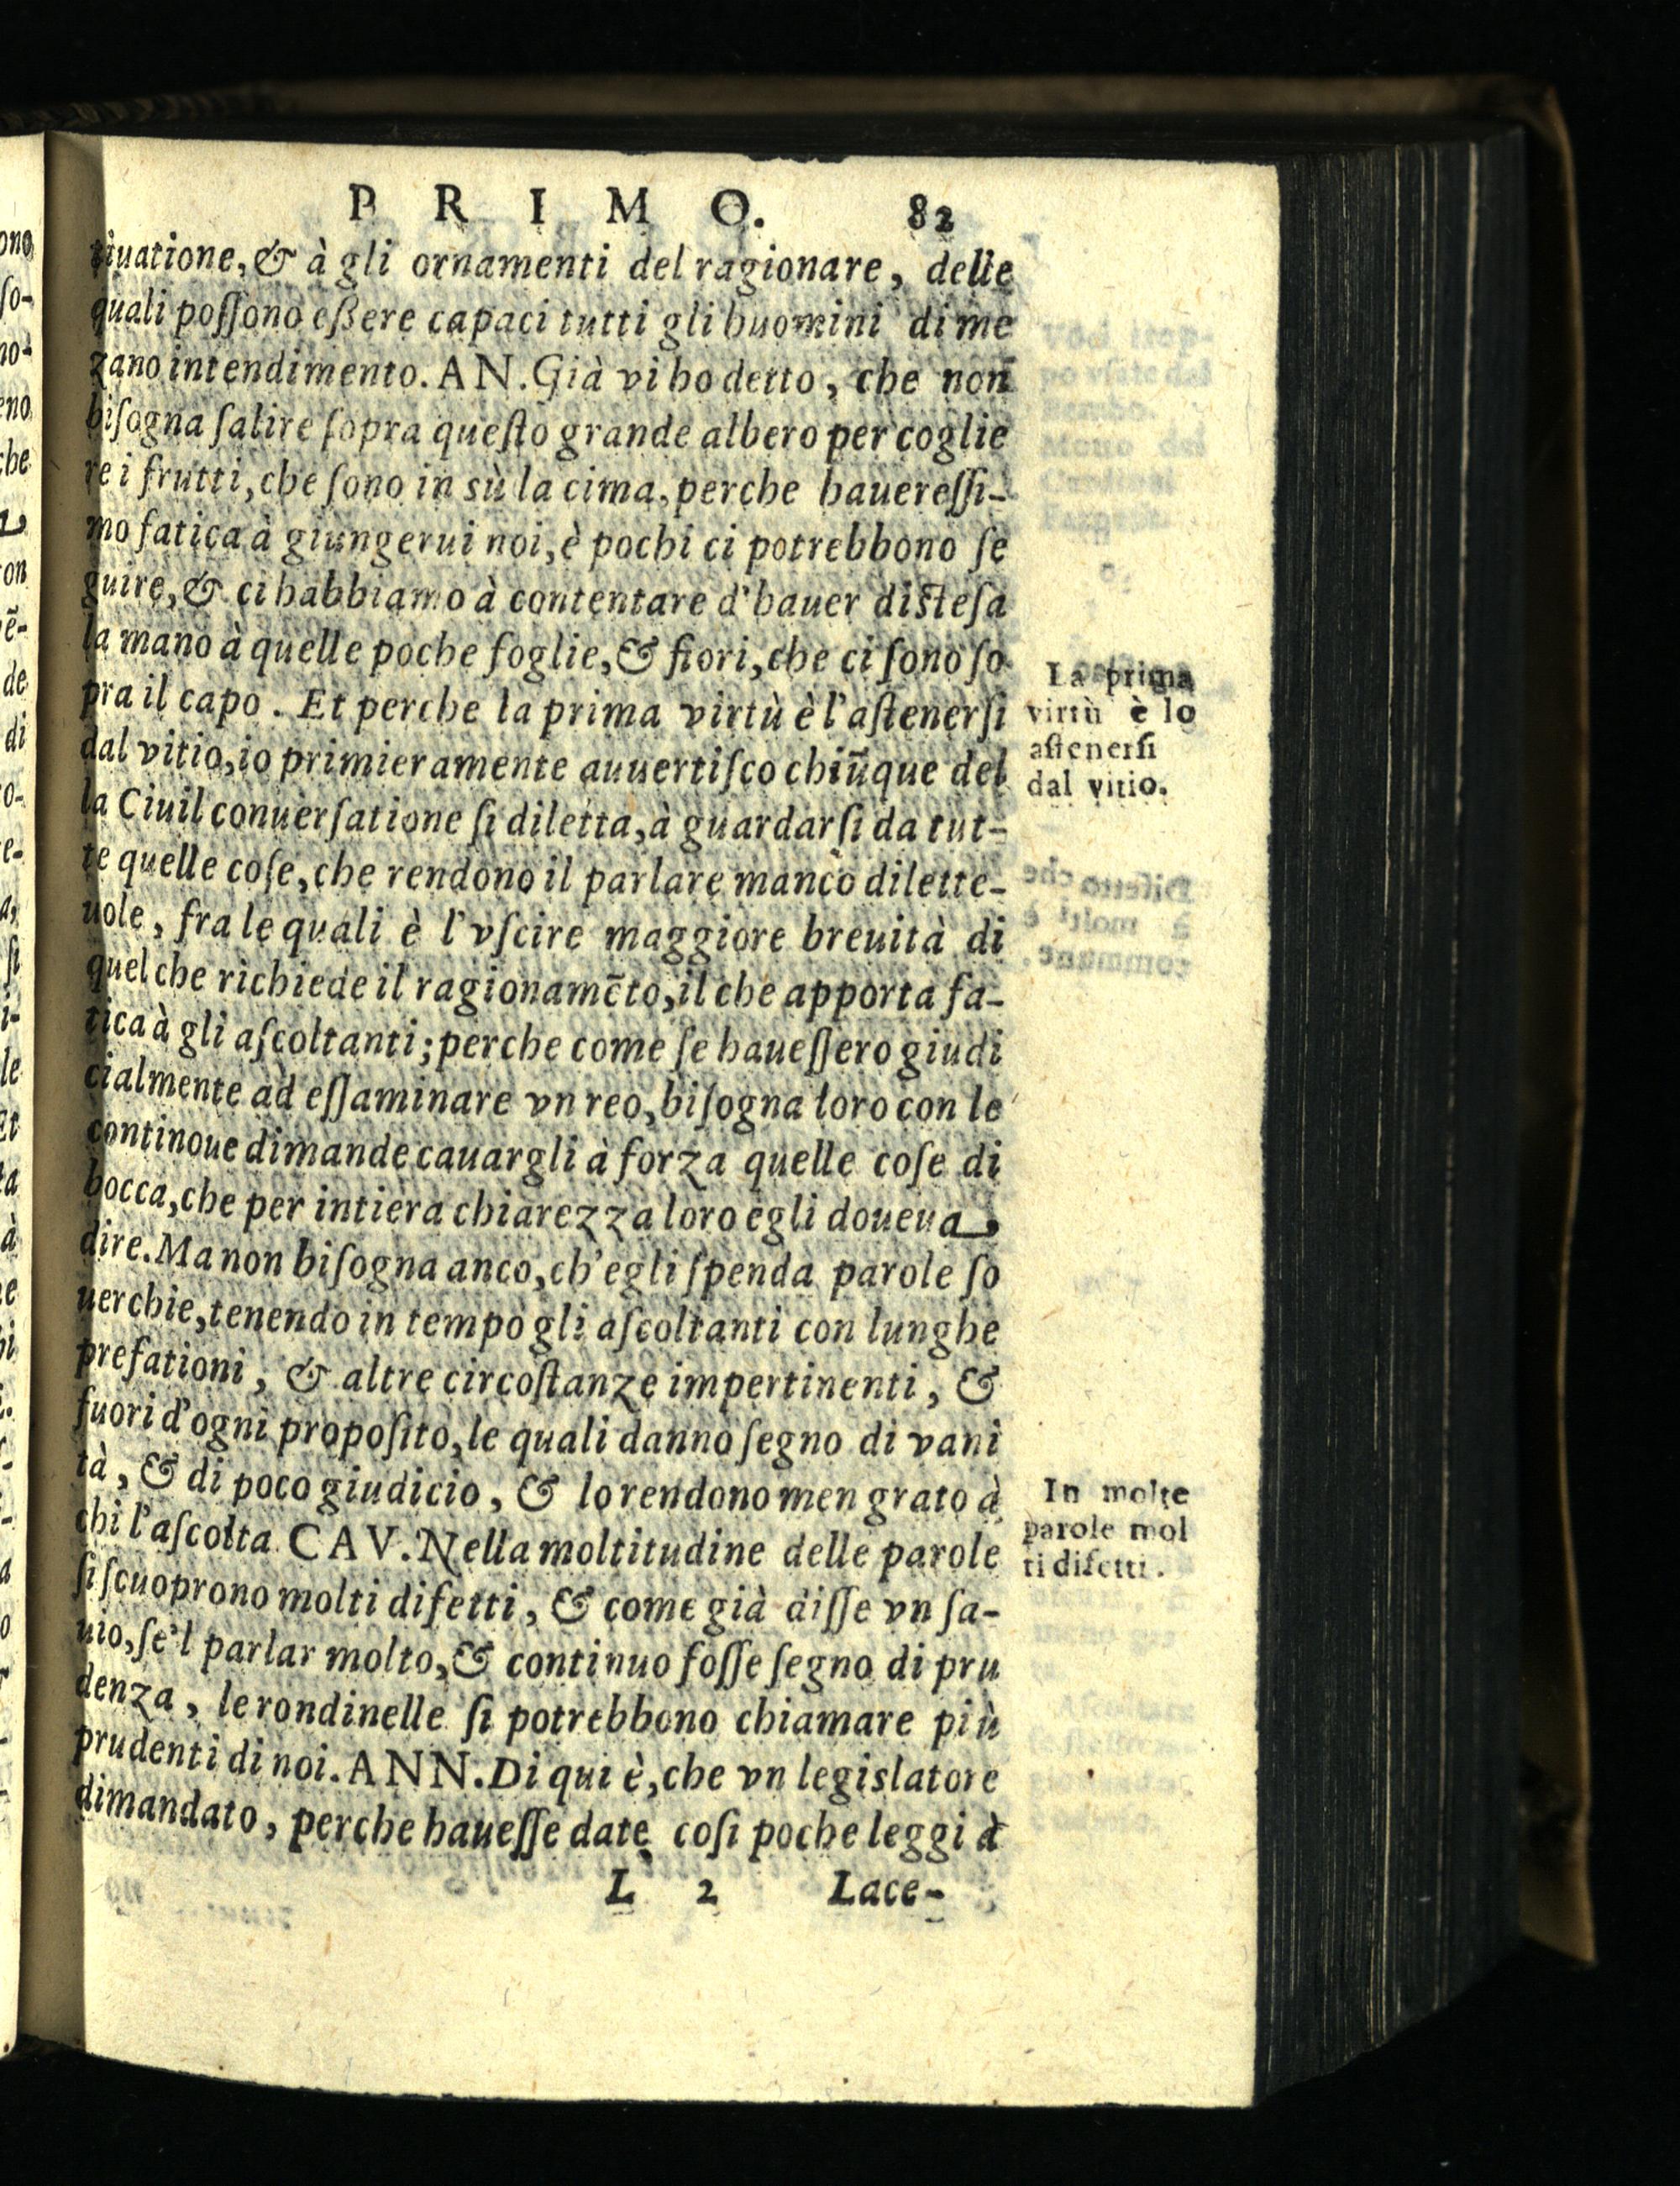 PRIMO. 82
tiuatione, & à gli ornamenti del ragionare, delle
quali poſſono eßere capaci tutti gli huomini di me
zano intendimento. AN. Già vi ho detto, che non̄
biſogna ſalire ſopra queſto grande albero per coglie
re i frutti, che ſono in sù la cima, perche haureſſi-
mo fatica à giungerui noi, è pochi ci potrebbono ſe
guire, & ci habbiamo à contentare d'hauer diſteſa
la mano à quelle poche foglie, & fiori, che ci ſono ſo
pra il capo. Et perche la prima virtù è l'aſtenerſi
dal vitio, io primieramente auuertiſco chiūque del
la Ciuil conuerſatione ſi diletta, à guardarſi da tut-
te quelle coſe, che rendono il parlare manco dilette-
uole, fra le quali è l'vſcire maggiore breuità di
quel che richiede il ragionamēto, il che apporta fa-
tica à gli aſcoltanti; perche come ſe haueſſero giudi
cialmente ad eſſaminare vn reo, biſogna loro con le
continoue dimande cauargli à forza quelle coſe di
bocca, che per intiera chiarezza loro egli doueua
dire. Ma non biſogna anco, ch'egli ſpenda parole ſo
uerchie, tenendo in tempo gli aſcoltanti con lunghe
prefationi, & altre circoſtanze impertinenti, &
fuori d'ogni propoſito, le quali danno ſegno di vani
tà, & di poco giudicio, & lo rendono men grato à
chi l'aſcolta. CAV. Nella moltitudine delle parole
ſi ſcuoprono molti difetti, & come già diſſe vn ſa-
uio, ſe'l parlar molto, & continuo foſſe ſegno di pru
denza, le rondinelle ſi potrebbono chiamare più
prudenti di noi. ANN. Di qui è, che vn legislatore
dimandato, perche haueſſe date coſi poche leggi à
L 2 Lace-
La prima
virtù è lo
aſtenerſi
dal vitio.
In molte
parole mol
ti difetti.